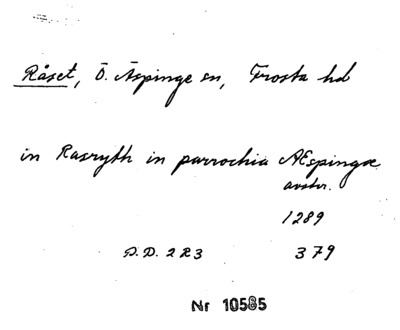 Råset, Ö. Äspinge sn, Frosta hd
in Rasryth in parrochia AEspingæ
avskr.
1289
D.D. 2 R 3 379
Nr 10585